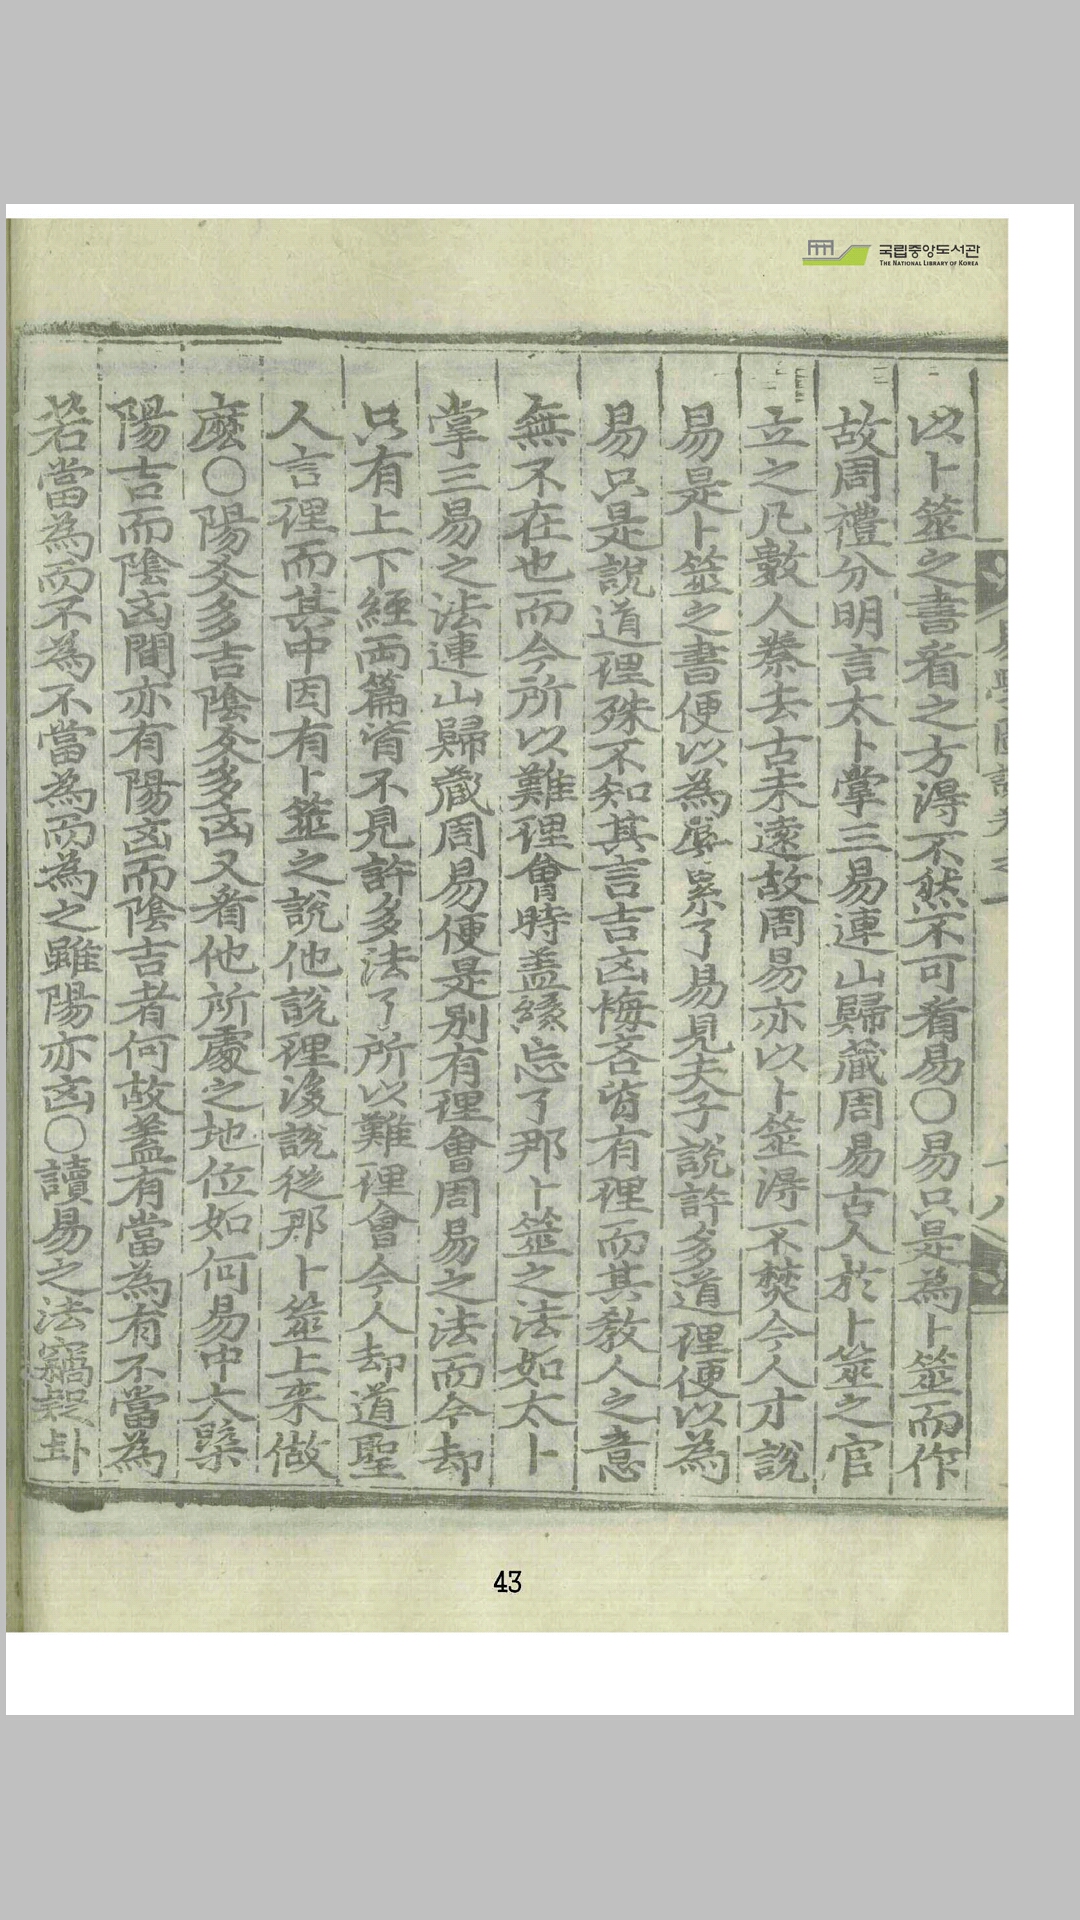 국립중앙도서관
THE NATIONAL LIBRARY OF KOREA
以卜筮之書看之方得不然不可看易○易只是為卜筮而作
故周禮分明言太卜掌三易連山歸藏周易古人於卜筮之官
立之凡數人秦去古未遠故周易亦以卜筮得不焚今人才說
易是卜筮之書便以為辱累了易見夫子說許多道理便以為
易只是說道理殊不知其言吉凶悔吝皆有理而其教人之意
無不在也而今所以難理會時盖緣忘了那卜筮之法如太卜
掌三易之法連山歸藏周易便是別有理會周易之法而今却
只有上下經両篇皆不見許多法了所以難理會今人却道聖
人言理而其中因有卜筮之說他說理後說從那卜筮上来做
麽○陽爻多吉陰爻多凶又看他所處之地位如何易中大槩
陽吉而陰凶間亦有陽凶而陰吉者何故盖有當為有不當為
若當為而不為不當為而為之雖陽亦凶○讀易之法竊疑卦
易學圖說卷之
十八
43